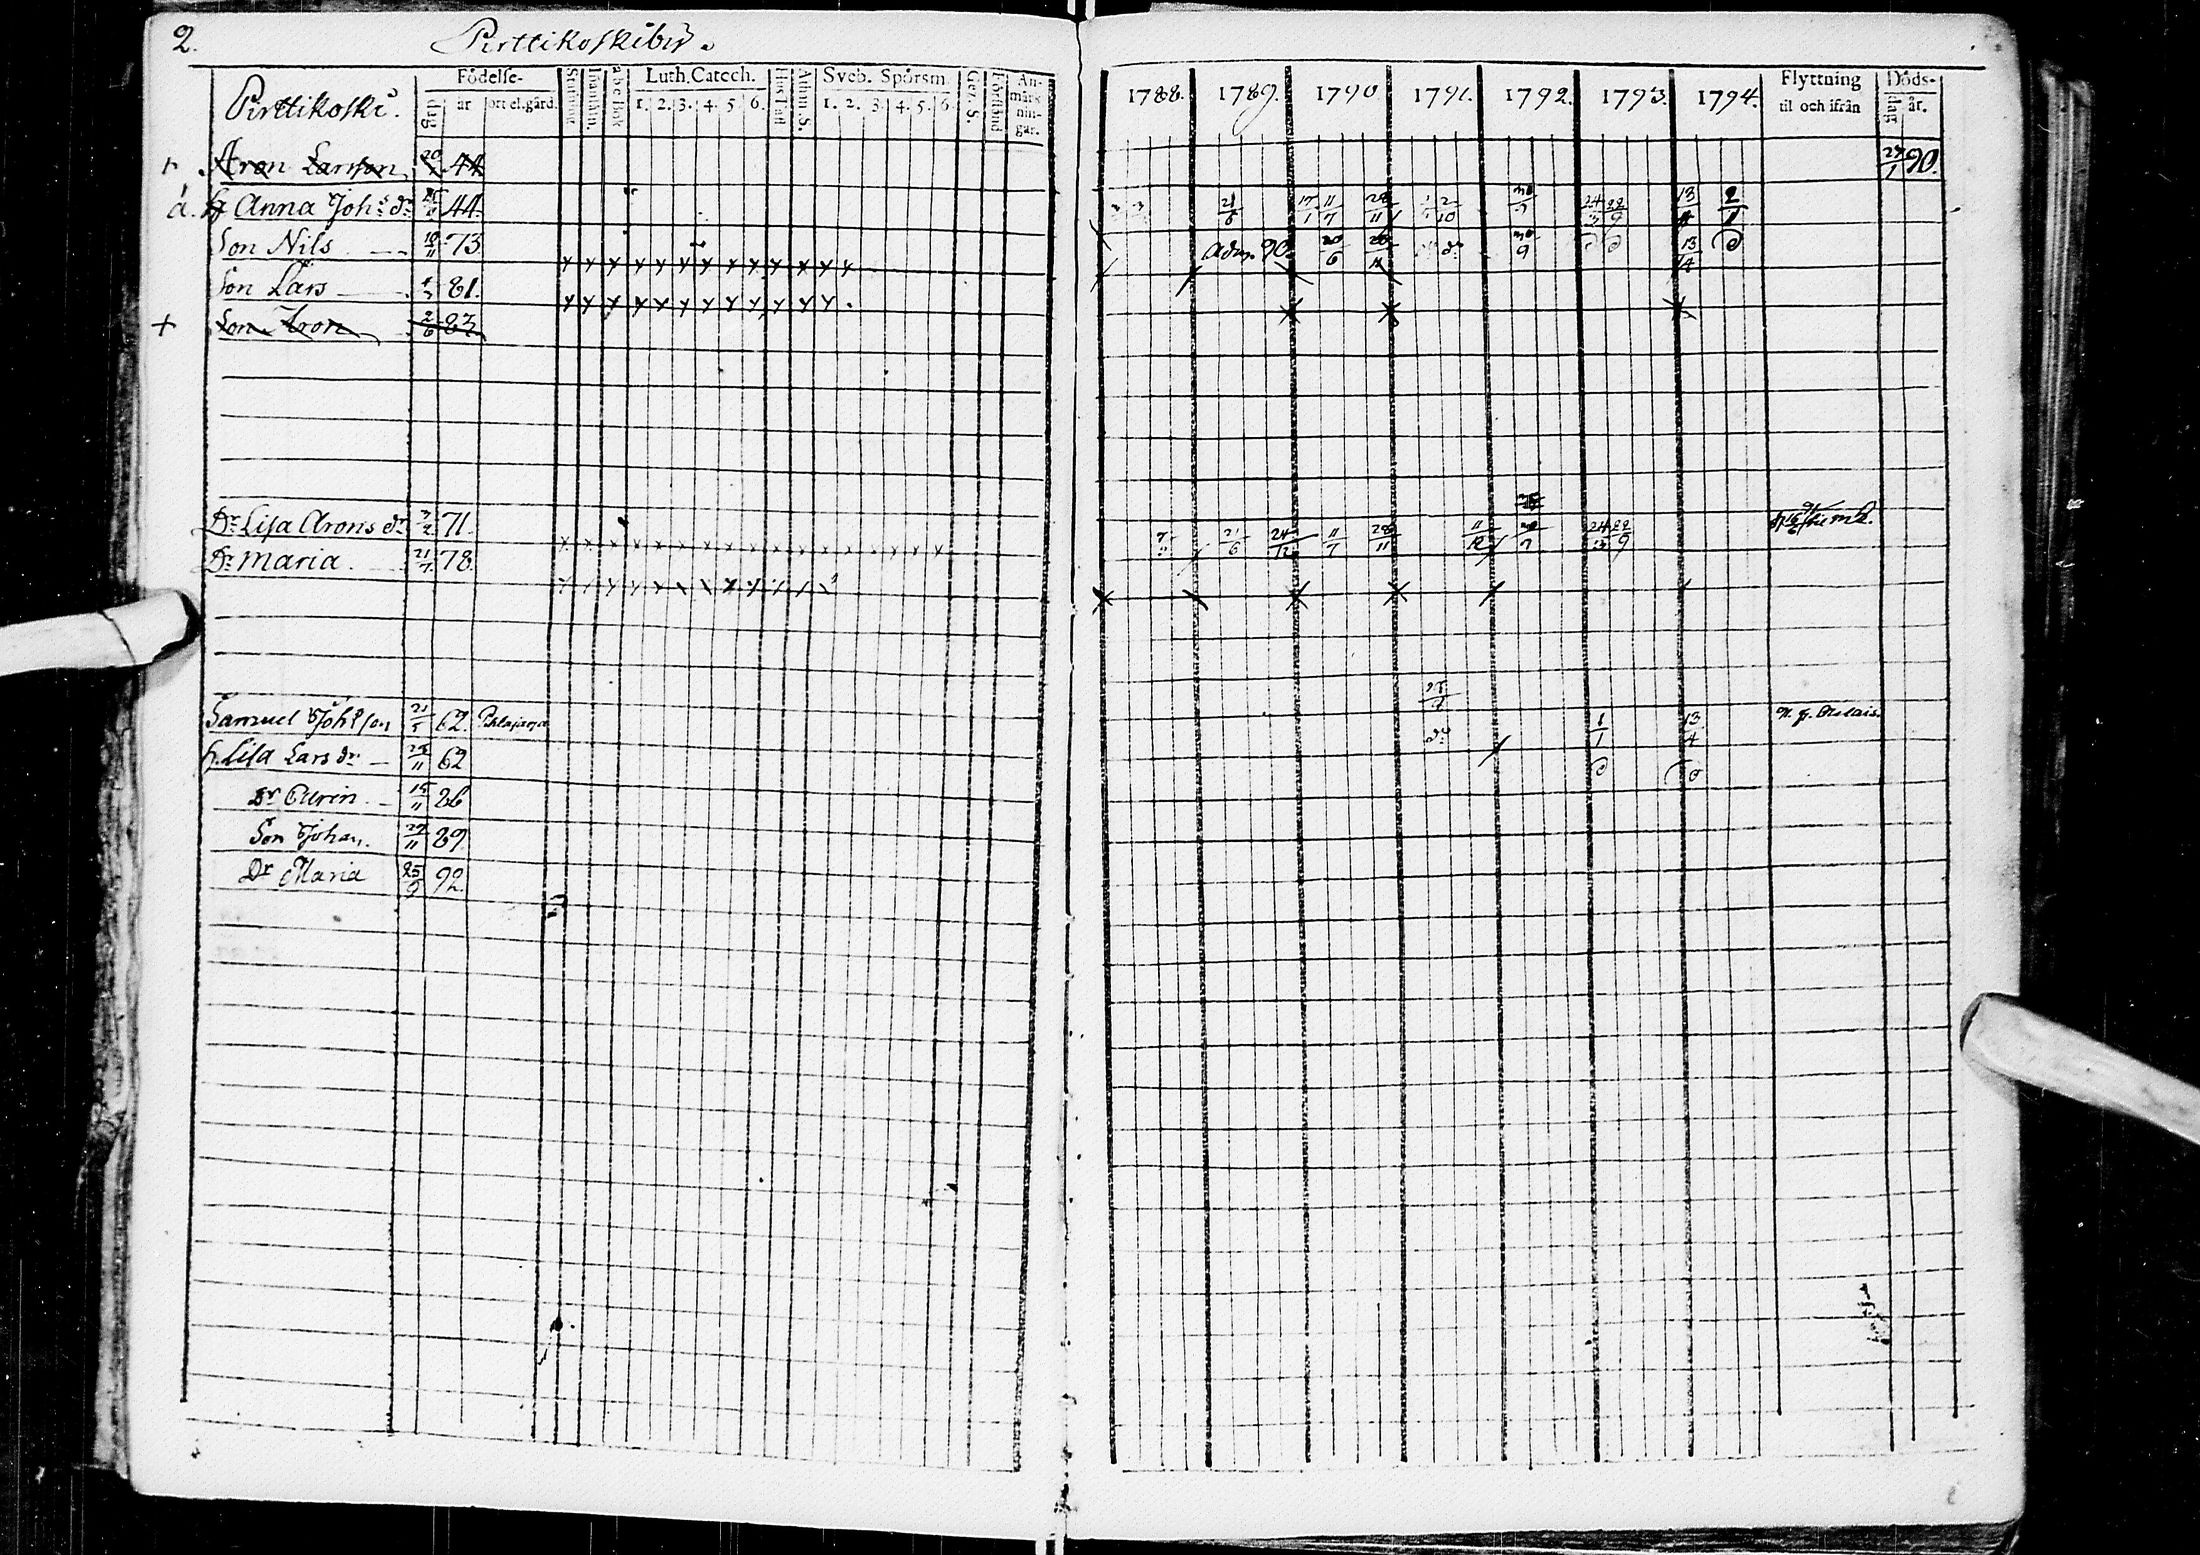 2. Pirttikoskiby.
Födelse- Luth. Catech. Sveb. Spörsm. An-märk-nin-gar. 1788. 1789. 1790 1791. 1792. 1793. 1794. Flyttning Döds-
Pirttikoski. dag år ort el. gård. Stafning Innanläs. a b c Bok 1. 2. 3. 4. 5. 6. Hus Tafl. Athan. S. 1. 2. 3. 4. 5. 6. Gez. S. Förstånd til och ifrån dag år.
Aron Larsson 44. 27/1 90.
Anna Joh:s dr 44. 21/6 17/1 11/7 28/11 2/10 30/9 24/3 22/9 13/4 2/1
Son Nils 10/11 73. adm. 90. 20/6 28/11 do 30/9 13/14
Son Lars 81.
+ Son Aron 2/6 83.
Dr Lisa Arons dr 71. 21/6 24/12 11/7 28/11 11/12 30/9 24/3 22/9
Dr Maria 21/7 78.
Samuel Joh:s son 21/5 62. 1/1 13/4
h. Lisa Lars dr 11 62
Dr Carin 15/11 86
Son Johan. 27/11 89.
Dr Maria 25/9 92.